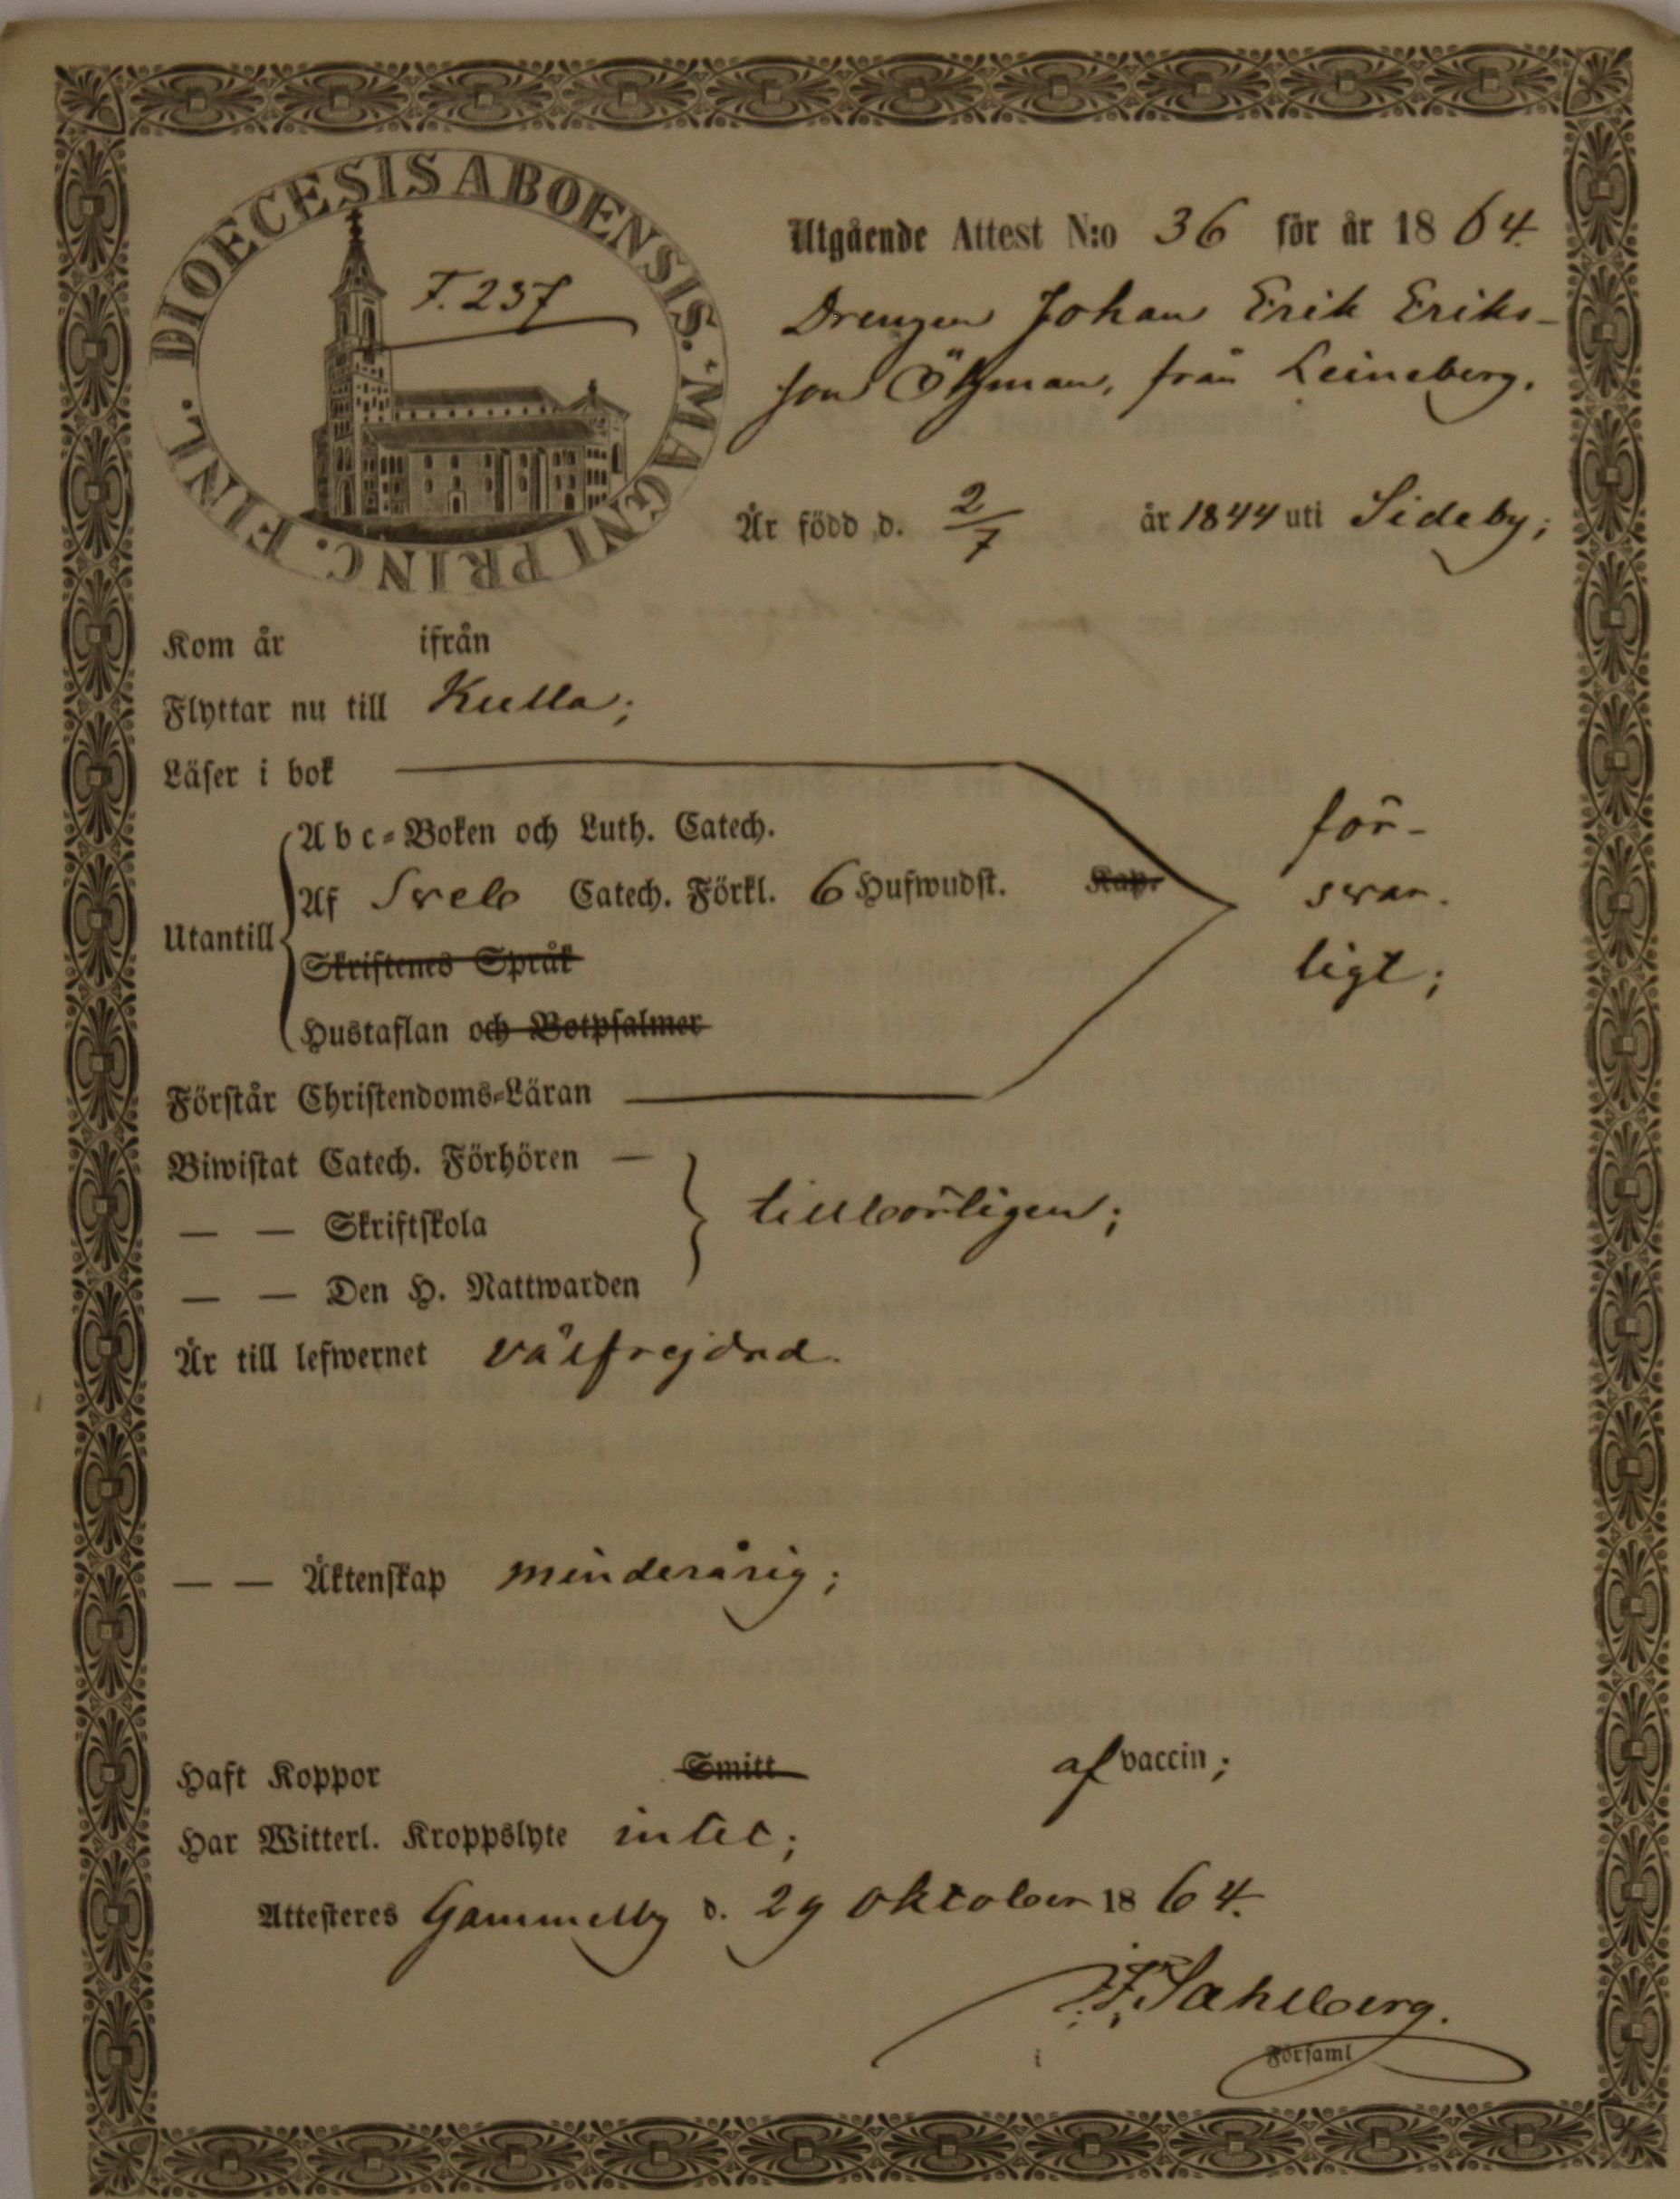 DIOECESIS ABOENSIS. MAGNI PRINC. FINL.
F. 257
Utgående Attest N:o 36 för år 1864.
Drengen Johan Erik Eriks-
son Öhman, från Leineberg.
Är född d. 2/7 år 1844 uti Sideby;
Kom år ifrån
Flyttar nu till Kulla;
Läser i bok
Abc-Boken och Luth. Catech.
Af Sveb Catech. Förkl. 6 Hufwudst. Kap.
Utantill
Skriftenes Språk
Hustaflan och Botpsalmer
för-
svar-
ligt;
Förstår Christendoms-Läran
Biwistat Catech. Förhören —
— — Skriftskola
tillbörligen;
— — Den H. Nattwarden
Är till lefwernet välfrejdad.
— — Äktenskap minderårig;
Haft Koppor Smitt af vaccin;
Har Witterl. Kroppslyte intet;
Attesteres Gammelby d. 29 Oktober 1864.
Sahlberg.
i Församl